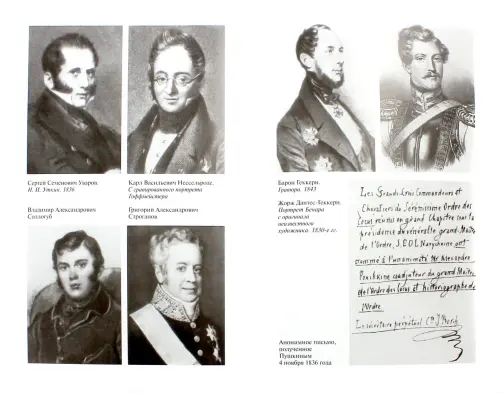 Сергей Семенович Уваров.
Н. И. Уткин. 1836
Карл Васильевич Нессельроде.
С гравированного портрета
Гоффмейстера
Владимир Александрович
Соллогуб
Григорий Александрович
Строганов
Барон Геккерн.
Гравюра. 1843
Жорж Дантес-Геккерн.
Портрет Бенара
с оригинала
неизвестного
художника. 1830-е гг.
Les Grands-Croix Commandeurs et
Chevaliers du Sérénissime Ordre des
Cocus réunis en grand Chapitre sous la
présidence du vénérable grand-Maître
de l'Ordre, S.E. D.L. Narychkine ont
nommé à l'unanimité Mr Alexandre
Pouchkine coadjuteur du grand Maître
de l'Ordre des Cocus et historiographe de
l'Ordre.
Le sécrétaire perpétuel: Cte J. Borch
Анонимное письмо,
полученное
Пушкиным
4 ноября 1836 года